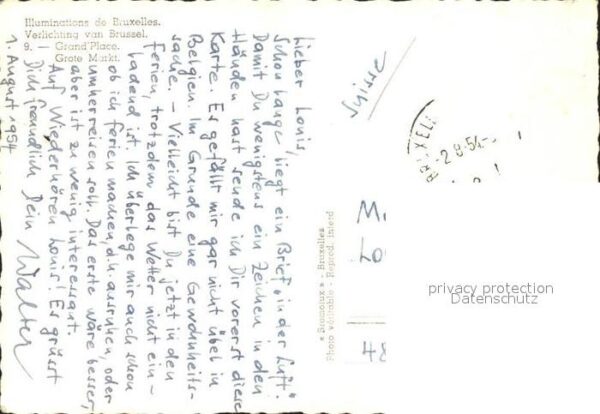 Illuminations de Bruxelles.
Verlichting van Brussel.
9. — Grand'Place.
Grote Markt.
1. August 1954
Lieber Louis,
Schon lange liegt ein Brief „in der Luft".
Damit Du wenigstens ein Zeichen in den
Händen hast sende ich Dir vorerst diese
Karte. Es gefällt mir gar nicht übel in
Belgien. Im Grunde eine Gewohnheits-
sache. – Vielleicht bist Du jetzt in den
Ferien, trotzdem das Wetter nicht ein-
ladend ist. Ich überlege mir auch schon
ob ich Ferien machen, d.h. ausruhen, oder
umherreisen soll. Das erste wäre besser,
aber ist zu wenig interessant.
Auf Wiederhören Louis! Es grüsst
Dich freundlich Dein Walter
« Bromolux » - Bruxelles
Photo véritable - Reprod. interd
Suisse
BRUXEL
-2-8-54-
M.
Lo
48
privacy protection
Datenschutz